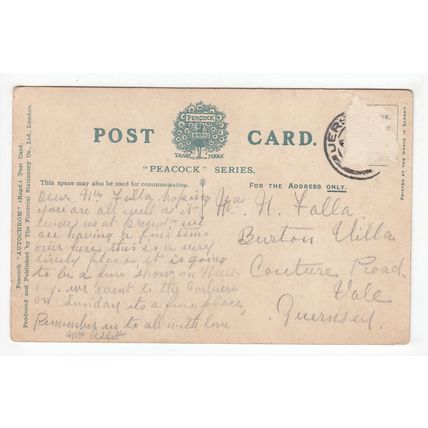 PEACOCK
BRAND
TRADE MARK
POST CARD.
"PEACOCK" SERIES.
This space may also be used for communication.
FOR THE ADDRESS ONLY.
Peacock "AUTOCHROM" (Regd.) Post Card.
Produced and Published by The Pictorial Stationery Co., Ltd., London.
PRINTED AT THE WORKS IN SAXONY.
JERS
Dear Falla hoping
you are all well as it
leaves us at present we
are having a fine time
over here this is a very
lively place it is going
to be a fine show on
day. we went to the
on Sunday its a fine place,
Remember us to all with love
H. Falla
Burton Villa
Couture Road
Vale
Guernsey.